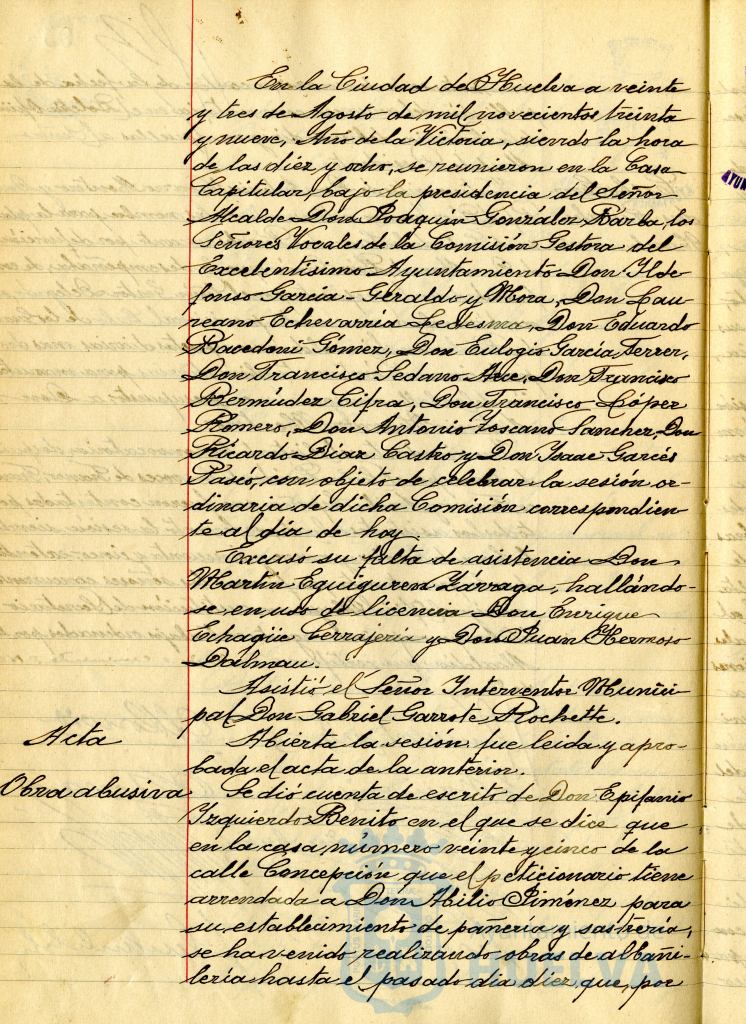 En la Ciudad de Huelva a veinte
y tres de Agosto de mil novecientos treinta
y nueve, Año de la Victoria, siendo la hora
de las diez y ocho, se reunieron en la Casa
Capitular, bajo la presidencia del Señor
Alcalde Don Joaquín González Barba, los
Señores Vocales de la Comisión Gestora del
Excelentísimo Ayuntamiento Don Ilde-
fonso García-Geraldo y Mora, Don Lau-
reano Echevarría Ledesma, Don Eduardo
Bacedoni Gómez, Don Eulogio García Ferrer,
Don Francisco Sedano Don Francisco
Bermúdez Cifra, Don Francisco López
Romero, Don Antonio Toscano Sanchez, Don
Ricardo Díaz Castro y Don Isaac Garcés
Pascó, con objeto de celebrar la sesión or-
dinaria de dicha Comisión correspondien-
te al día de hoy.
Excusó su falta de asistencia Don
Martín Eguiguren Yárzaga, hallándo-
se en uso de licencia Don Enrique
Echagüe Cerrajería y Don Juan Hermoso
Dalmau.
Asistió el Señor Interventor Munici-
pal Don Gabriel Garrote Rochette.
Acta
Abierta la sesión fue leida y apro-
bada el acta de la anterior.
Obra abusiva
Se dió cuenta de escrito de Don Epifanio
Izquierdo Benito en el que se dice que
en la casa número veinte y cinco de la
calle Concepción que el peticionario tiene
arrendada a Don Abilio Jiménez para
su establecimiento de pañería y sastrería,
se ha venido realizando obras de albañi-
lería hasta el pasado dia diez, que, por
HUELVA